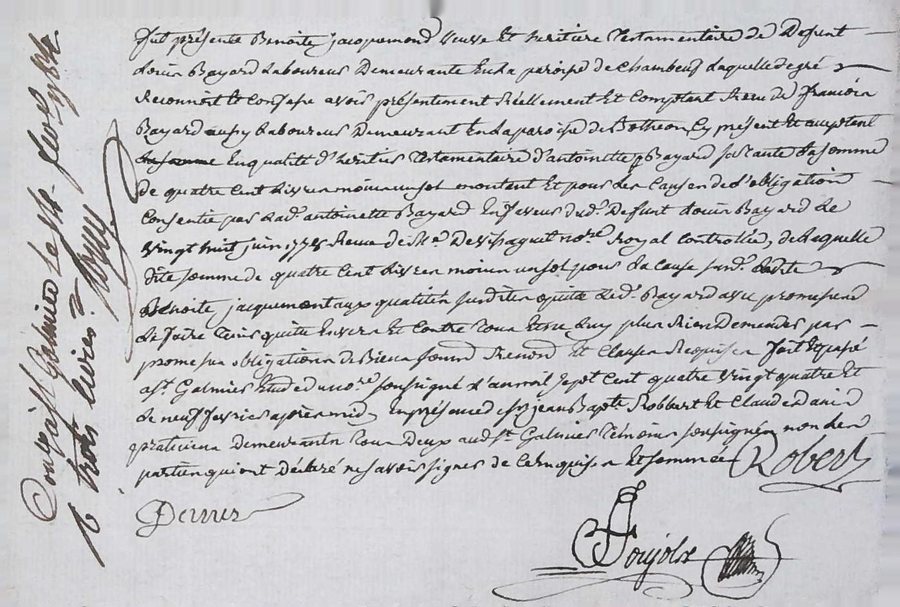 fut présente Benoite jacquemond veuve et heritiere testamentaire de defunt
Louis Bayard Laboureur Demeurante en La paroisse de Chambeuf Laquelle de gré
Reconnoit et Confesse avoir présentement Réellement Et Comptant Recu de francois
Bayard aussy Laboureur Demeurant En La paroisse de Botheon Cy présent Et acceptant
En qualité d'heritier testamentaire d'antoinette Bayard sa tante La somme
de quatre Cent Livres moins un sol montant Et pour Les Causes de L'obligation
Consentie par Lad. antoinette Bayard En faveur dud. Defunt Louis Bayard Le
vingt huit juin Reçue de Me. notre. Royal Controllée, de Laquelle
dite somme de quatre Cent Livres moins un sol pour La Cause susd. Ladite
Benoite jacquemont aux qualités susdites quitte Led. Bayard avec promesse
de faire tenir quitte Envers Et Contre tous Et ne Luy plus Rien Demander par
promesses obligations de Biens soumd. Renond. Et Clauses Requises fait Et passé
a St. Galmier Etude du nore. soussigné L'an mil sept Cent quatre vingt quatre Et
Le neuf fevrier après midy En présence de sr. jean Bapte Robbert Et Claude
praticiens Demeurants tous Deux aud. St. Galmier témoins soussignés non Les
parties qui ont déclaré ne savoir signer de Ce Enquises Et sommées Robert
Ponjolx
Controllé a St Galmier Le 14 fev. 1784
R. trois Livres